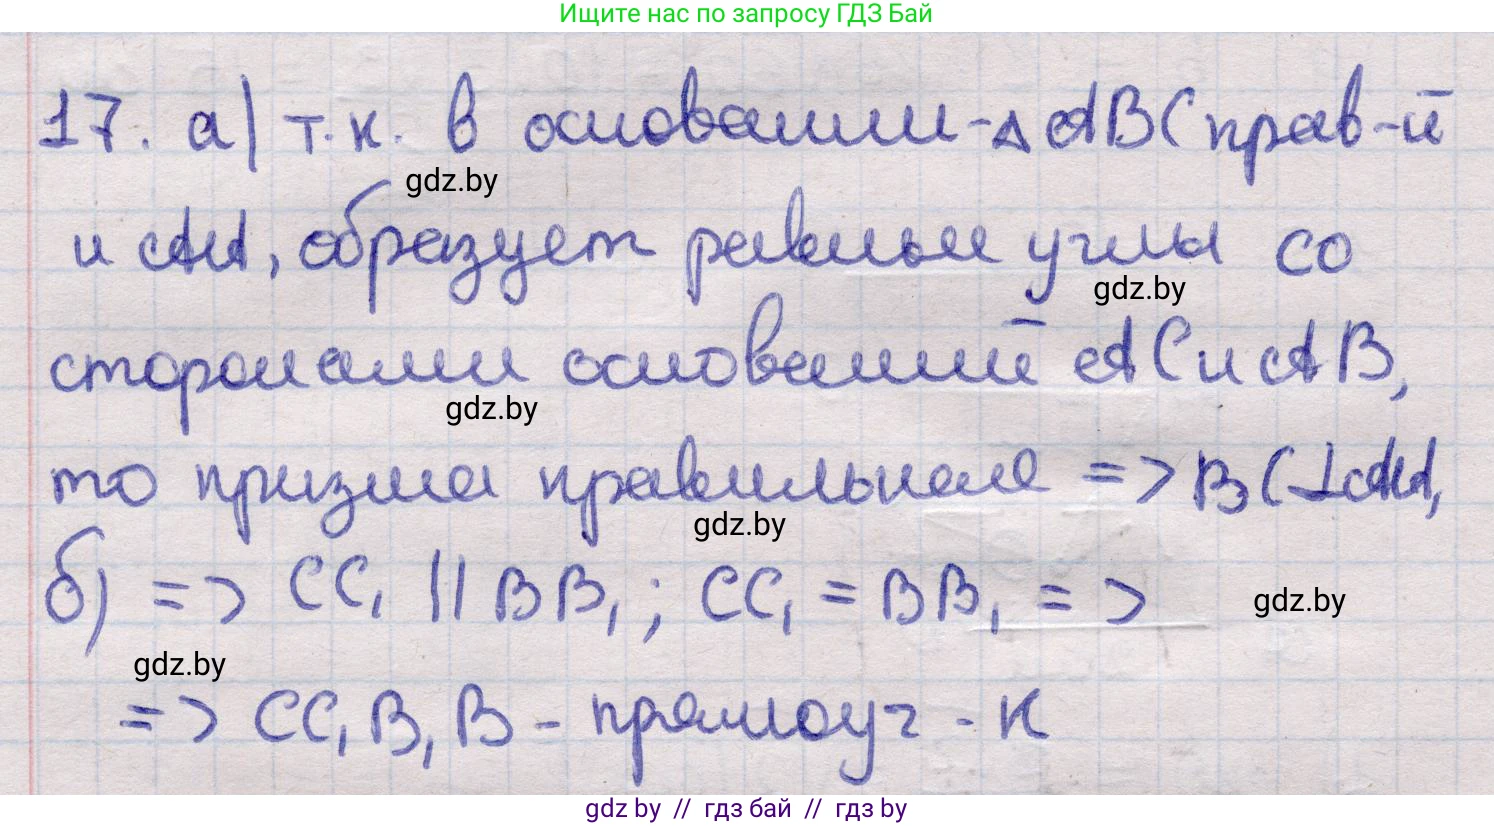 Ищите нас по запросу ГДЗ Бай
17. а) т.к. в основании - △ ABC прав-й
gdz.by
и AA₁ образует равные углы со
gdz.by
сторонами оснований AC и AB,
gdz.by
то призма правильная => BC ⊥ AA₁
gdz.by
б) => CC₁ || BB₁ ; CC₁ = BB₁ =>
gdz.by
gdz.by
=> CC₁B₁B - прямоуг-к
gdz by // гдз бай // гдз by